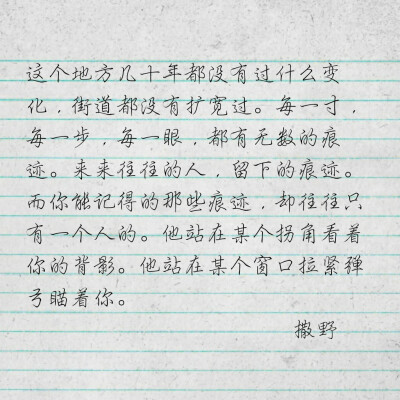 这个地方几十年都没有过什么变
化，街道都没有扩宽过。每一寸，
每一步，每一眼，都有无数的痕
迹。来来往往的人，留下的痕迹。
而你能记得的那些痕迹，却往往只
有一个人的。他站在某个拐角看着
你的背影。他站在某个窗口拉紧弹
弓瞄着你。
撒野